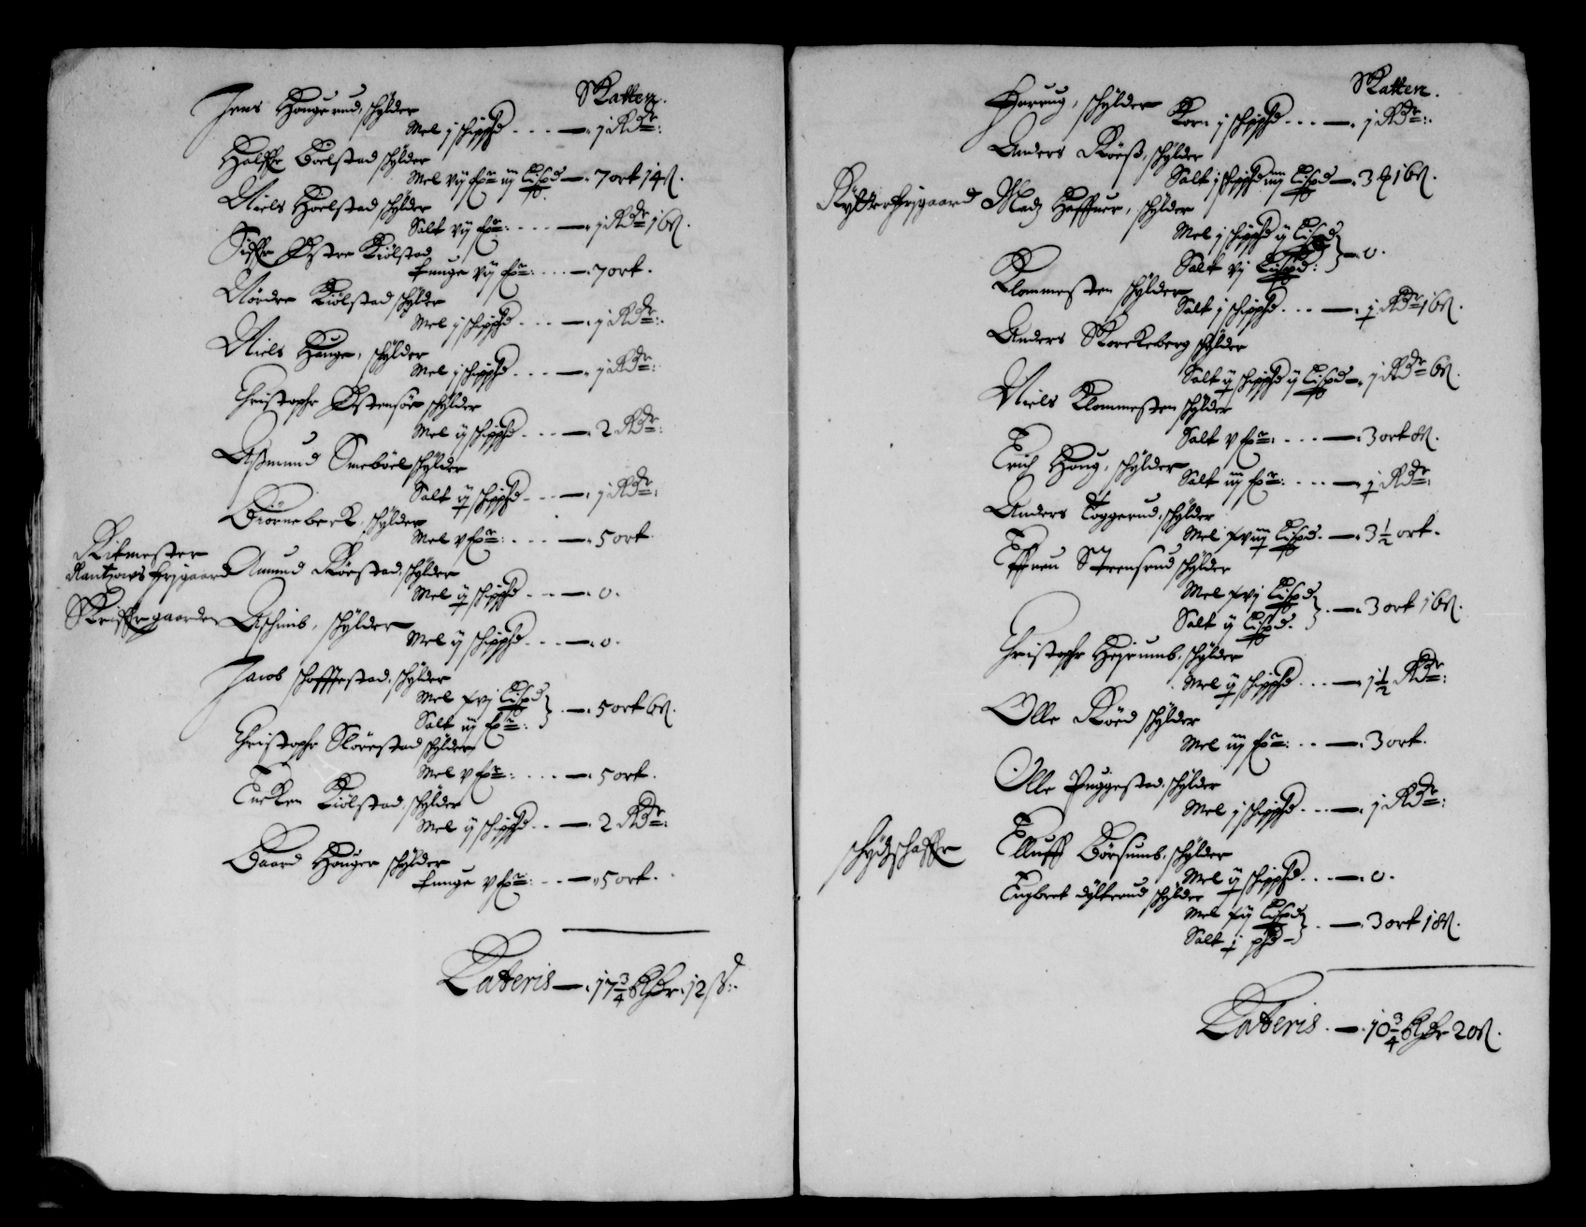 Skatten.
Jens Hougerud, schylder
Mel j schippd - - - j Rdr:
Haldor Boelstad schylder
Mel vij fr iij Lispd - 7 ort 14 s.
Niels Hoelstad schylder
Salt vij fr: - - j Rdr 16 s.
Østre Kiølstad
Tunge vij fr: - - 7 ort.
Nørdre Kiølstad schylder
Mel j schippd - - - j Rdr:
Niels Houge, schylder
Mel j schippd - - - j Rdr:
Christopher Østensøe schylder
Mel ij schippd - - - 2 Rdr:
Aßmund Smeböel schylder
Salt ij schippd - - - j Rdr:
Biörnebeck, schylder
Mel v fr: - - - 5 ort.
Ritmester
Rantzows frjgaard
Amund Röestad, schylder
Mel ij schippd - - - 0.
Aschimb, schylder
Mel ij schippd - - - 0.
Jacob schofftestad, schylder
Mel xvj Lispd
Salt iij fr: } - 5 ort 6 s.
Christopher Slörestad schylder
Mel v fr: - - - 5 ort.
Kiölstad, schylder
Mel ij schippd - - 2 Rdr:
Baard Houger schylder
Tunge v fr: - - - 5 ort.
Lateris - 17 3/4 Rdr. 12 s:
Skatten.
Horrug, schylder
Korn j schippd - - - j Rdr:
Anders Röeß, schylder
Salt j schippd iiij Lispd - 3 ort 16 s.
Rytterfrjgaard
Madz Haffner, schylder
Mel j schippd ij Lispd
Salt vj Lispd: } - 0.
Klommesten schylder
Salt j schippd - - - j Rdr 16 s.
Anders Skorckeberg schylder
Salt ij schippd ij Lispd - j Rdr 6 s.
Niels Klommesten schylder
Salt v fr: - - - 3 ort 8 s.
Erich Houg, schylder
Salt iij fr: - - - j Rdr:
Anders Toggerud, schylder
Mel xviij Lispd. - 3 1/2 ort.
Strensrud schylder
Mel xvj Lispd
Salt ij Lispd. } - 3 ort 16 s.
Christopher Hejrumb, schylder
Mel ij schippd - - - 1 1/2 Rdr:
Olle Röed schylder
Mel iij fr: - - 3 ort.
Olle Puggestad, schylder
Mel j schippd - - - j Rdr:
schydschaffer
Elluff Börsumb, schylder
Mel ij schippd - - - 0.
Engbret dylterud schylder
Mel xij Lispd
Salt j pd - } - 3 ort 18 s.
Lateris. - 10 3/4 Rdr 20 s.